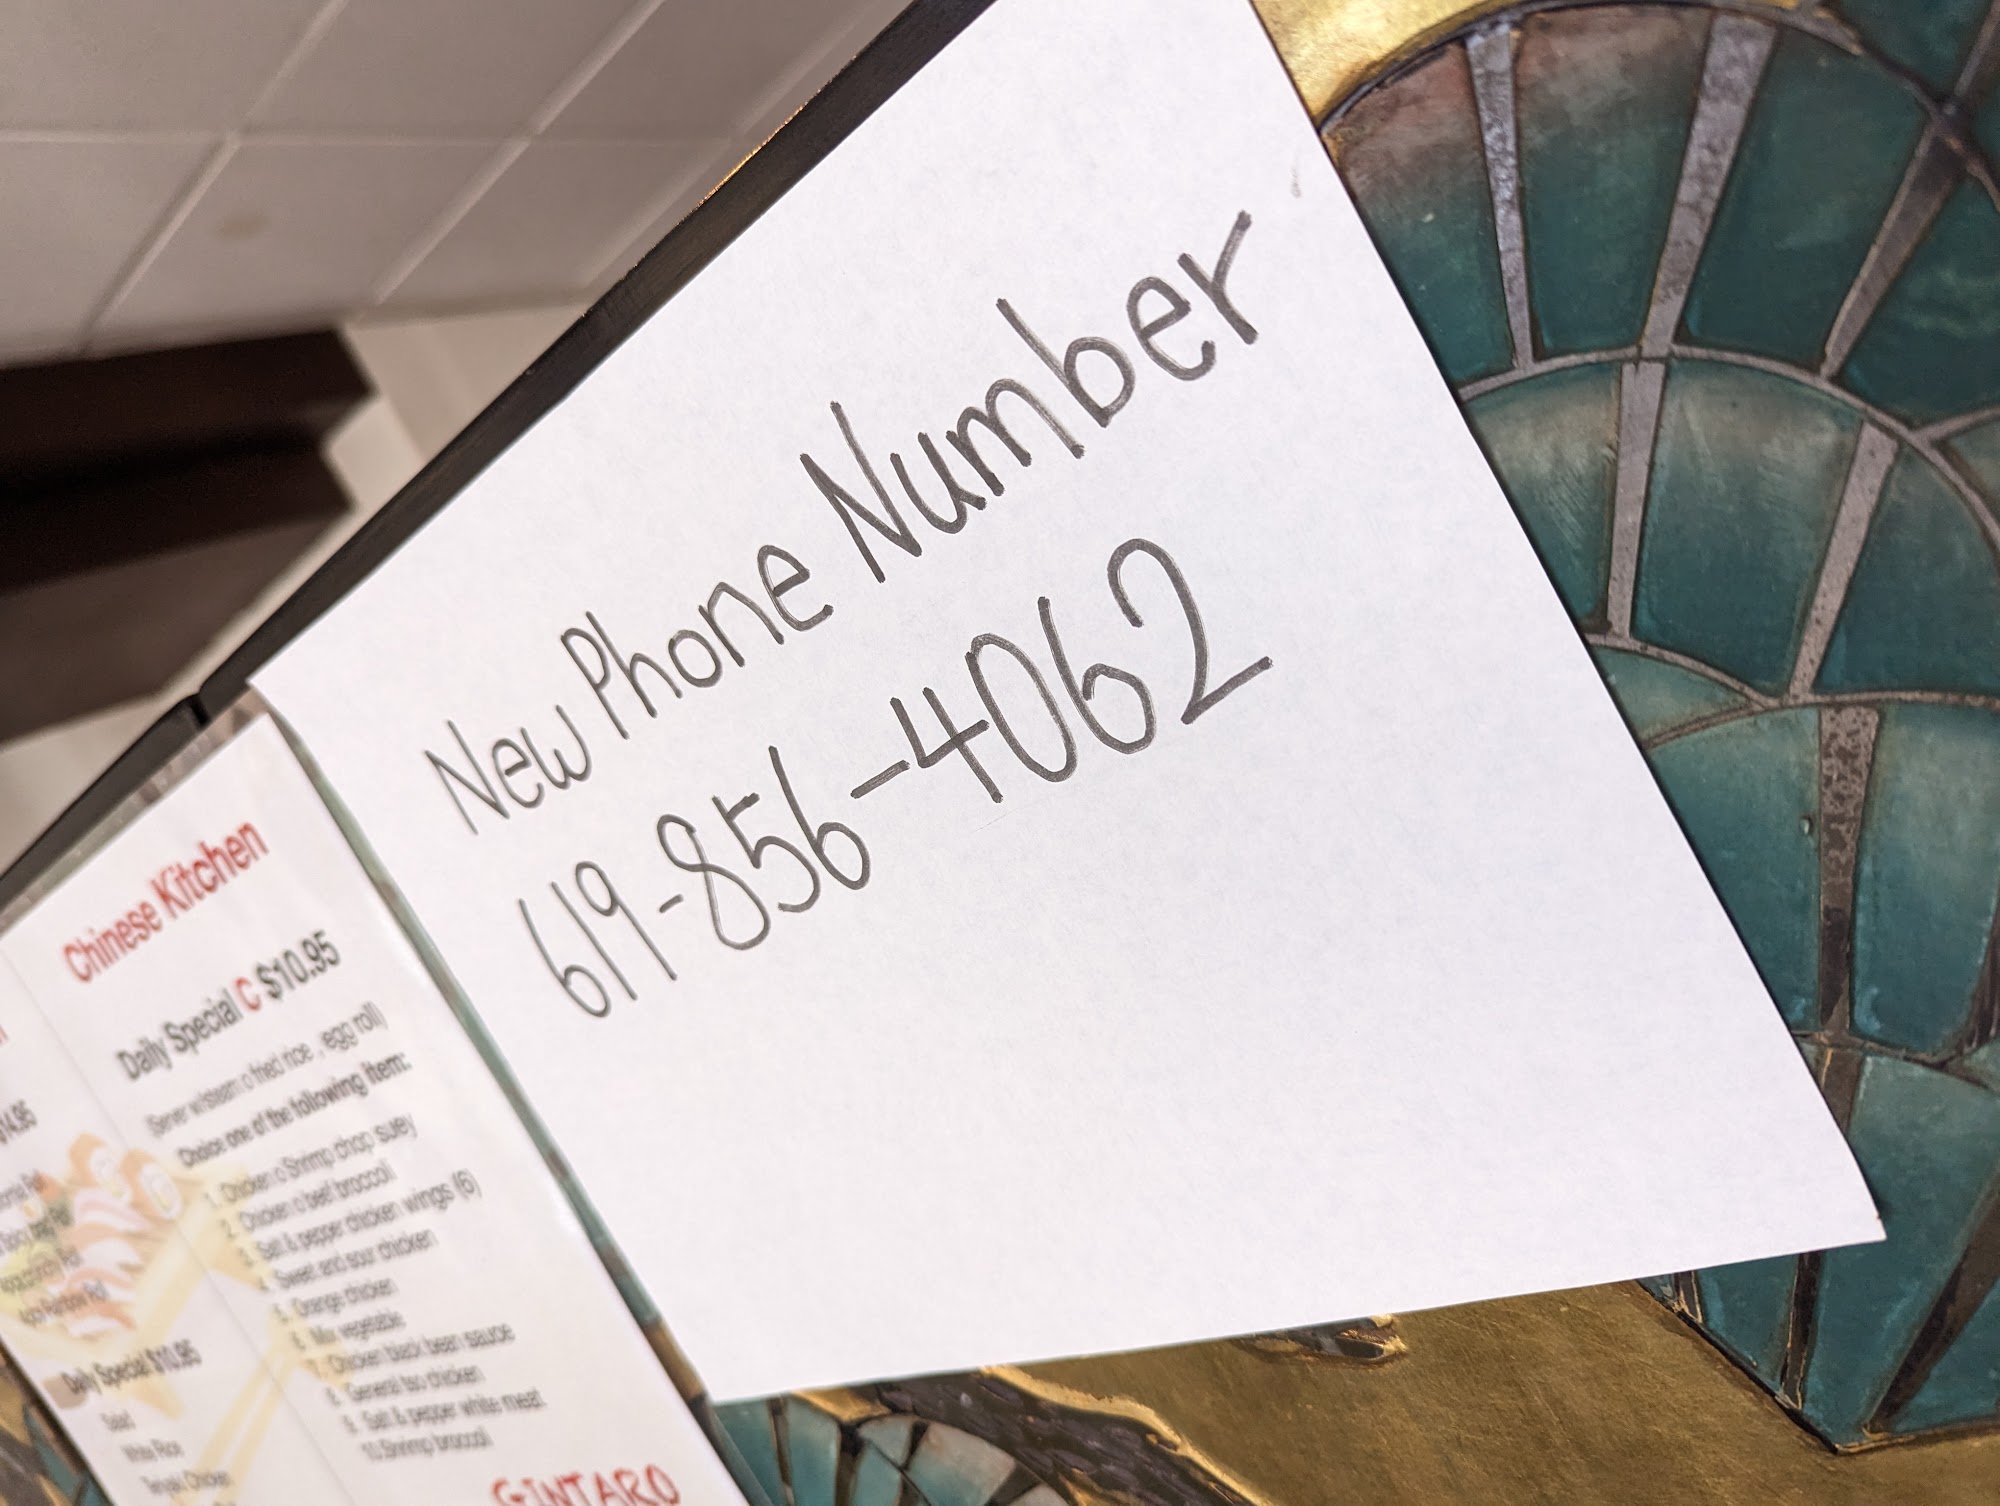 New Phone Number
619-856-4062
Chinese Kitchen
Daily Special C $10.95
(Server w/steam o fried rice , egg roll)
Choice one of the following item:
1. Chicken o Shrimp chop suey
2. Chicken o beef broccoli
3. Salt & pepper chicken wings (6)
4. Sweet and sour chicken
5. Orange chicken
6. Mix vegetable
7. Chicken black bean sauce
8. General tso chicken
9. Salt & pepper white meat
10.Shrimp brocoli
GINTARO
$14.95
Roll
Roll
Roll
Daily Special $10.95
Salad
White Rice
Teriyaki Chicken